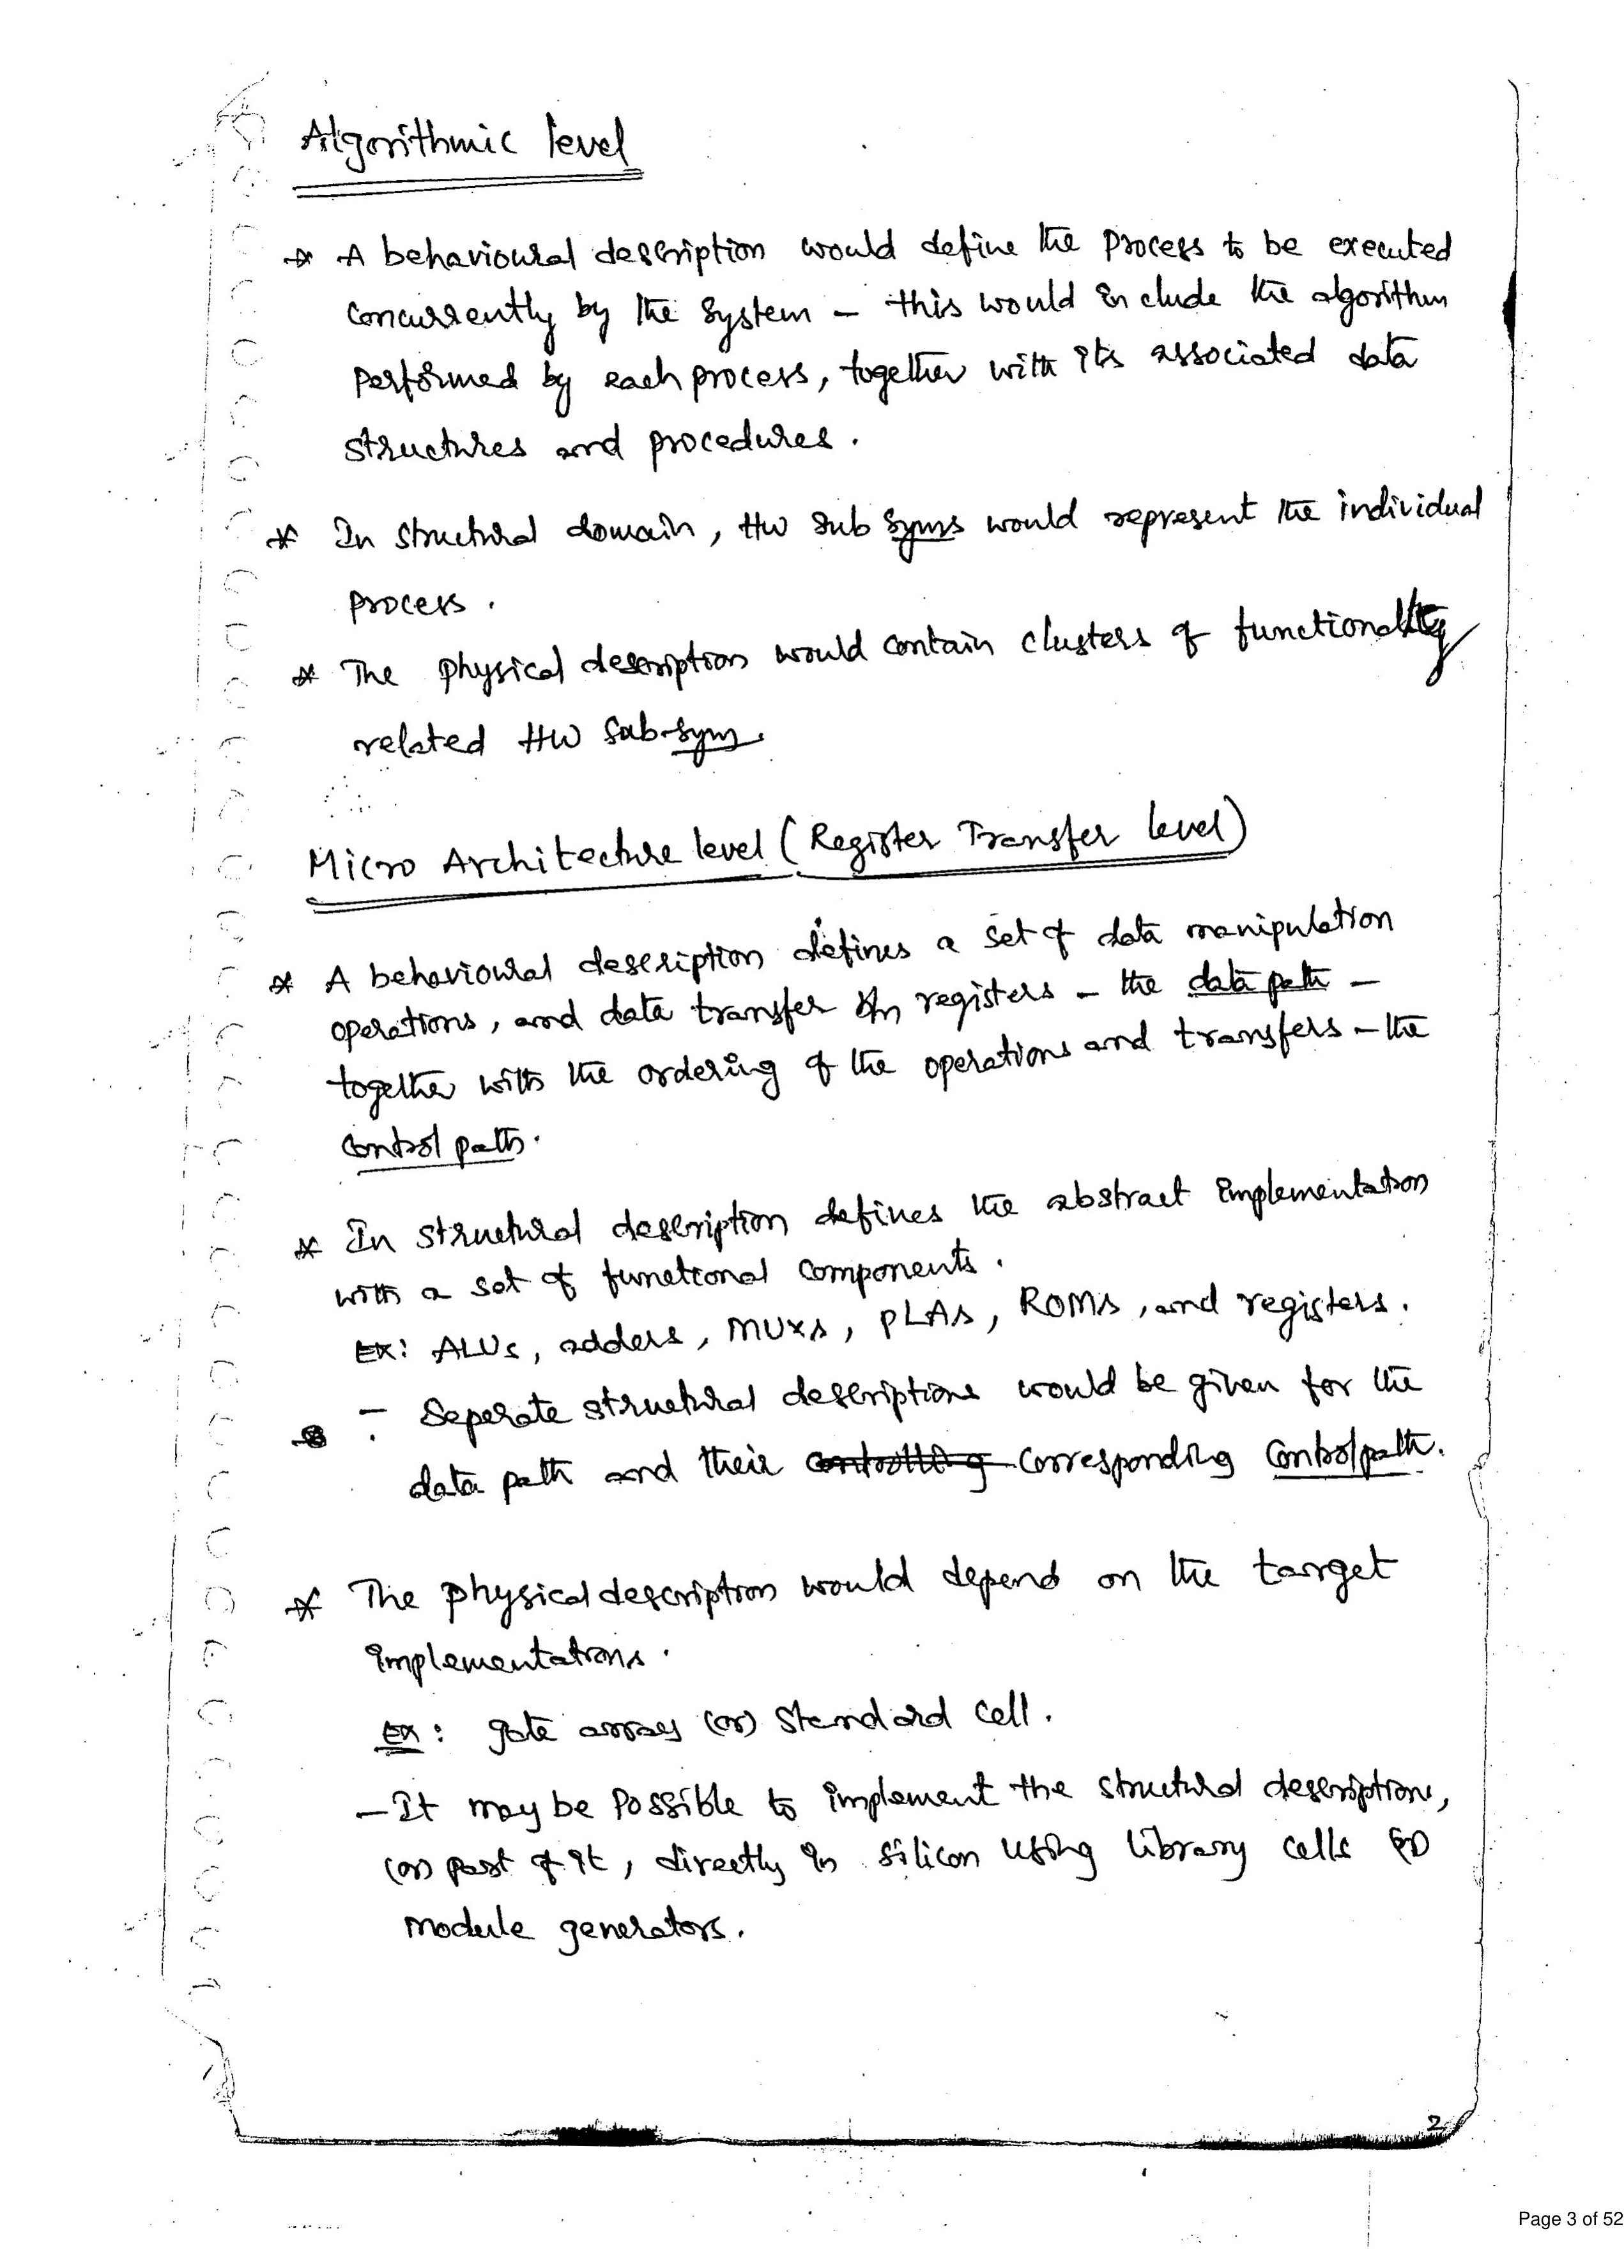 Algorithmic level
* A behavioural description would define the process to be executed
concurrently by the system – this would include the algorithm
performed by each process, together with its associated data
structures and procedures.
* In structural domain, HW sub syms would represent the individual
process.
* The physical description would contain clusters of functionality
related HW sub-sym.
Micro Architecture level (Register Transfer level)
* A behavioural description defines a set of data manipulation
operations, and data transfer in registers – the data path –
together with the ordering of the operations and transfers – the
control path.
* In structural description defines the abstract implementation
with a set of functional components.
Ex: ALUs, adders, MUXs, PLAs, ROMs, and registers.
– Seperate structural descriptions would be given for the
data path and their controlling corresponding control path.
* The physical description would depend on the target
implementations.
Ex: gate array (or) standard cell.
– It may be possible to implement the structural descriptions,
(or) part of it, directly in silicon using library cells (or)
module generators.
2
Page 3 of 52